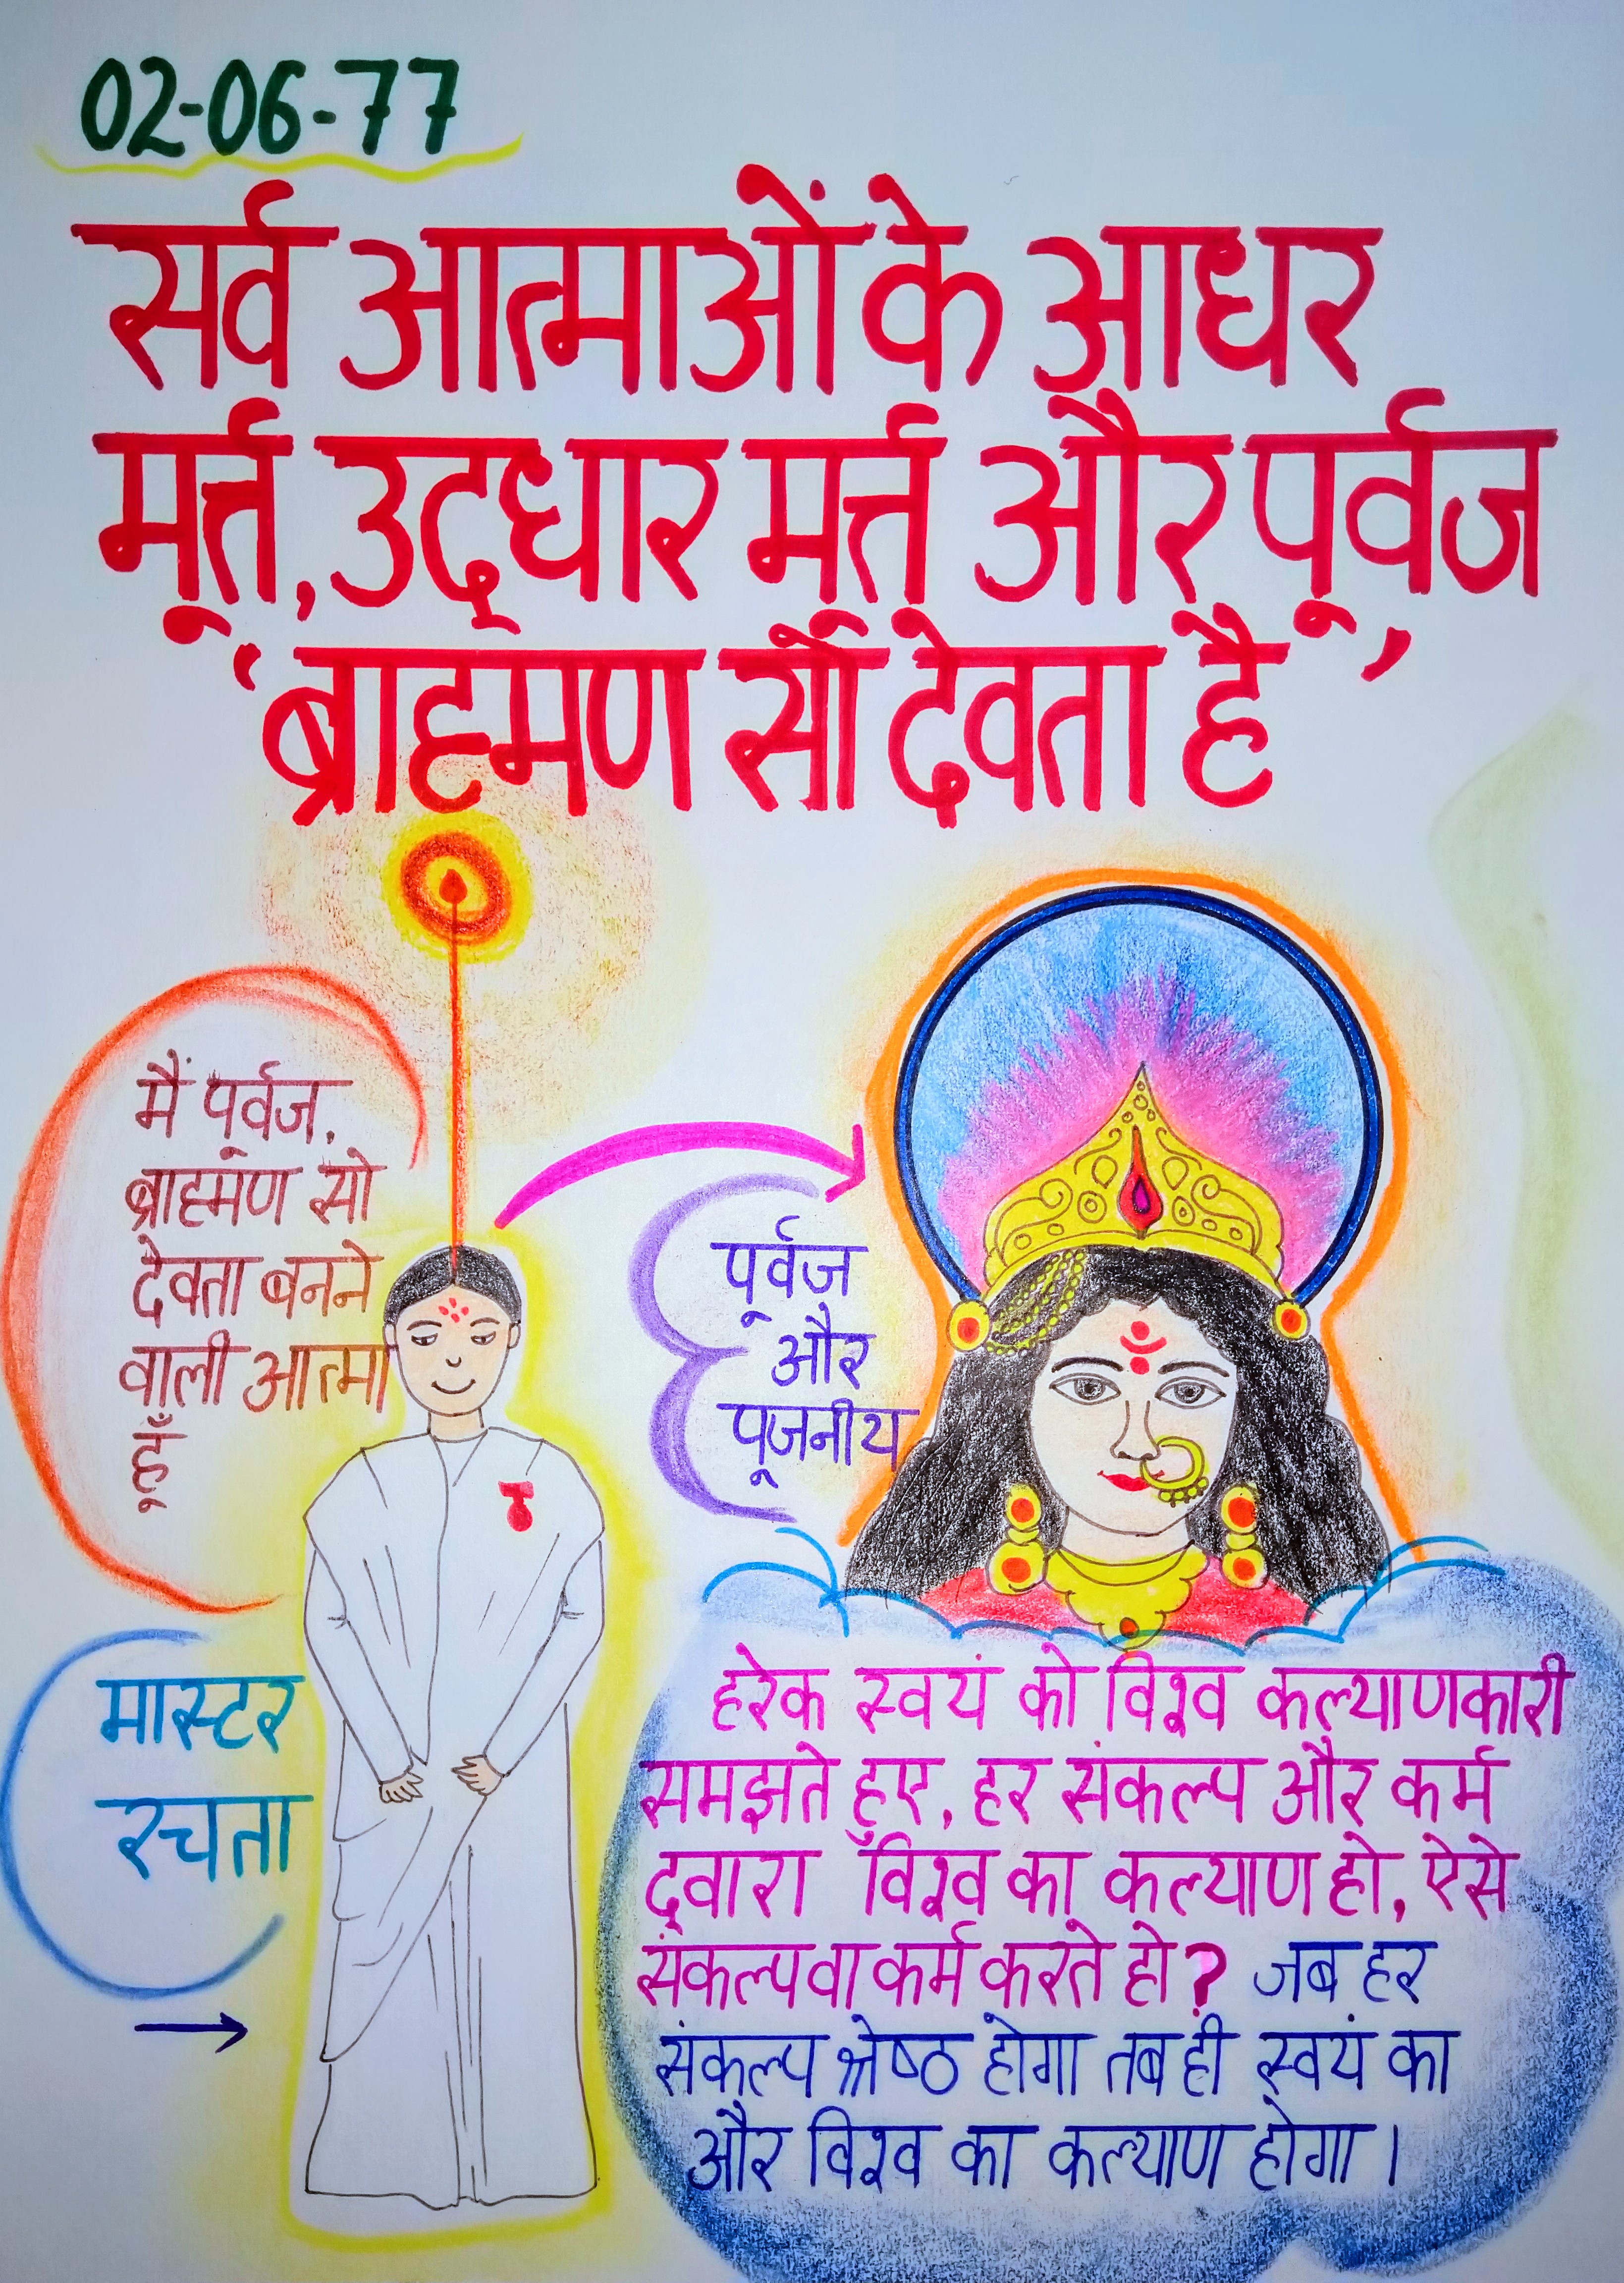 02-06-77
सर्व आत्माओं के आधर
मूर्त, उद्धार मूर्त और पूर्वज
‘ब्राह्मण सो देवता है’
मैं पूर्वज,
ब्राह्मण सो
देवता बनने
वाली आत्मा
हूँ
पूर्वज
और
पूजनीय
मास्टर
रचता
हरेक स्वयं को विश्व कल्याणकारी
समझते हुए, हर संकल्प और कर्म
द्वारा विश्व का कल्याण हो, ऐसे
संकल्प वा कर्म करते हो? जब हर
संकल्प श्रेष्ठ होगा तब ही स्वयं का
और विश्व का कल्याण होगा।